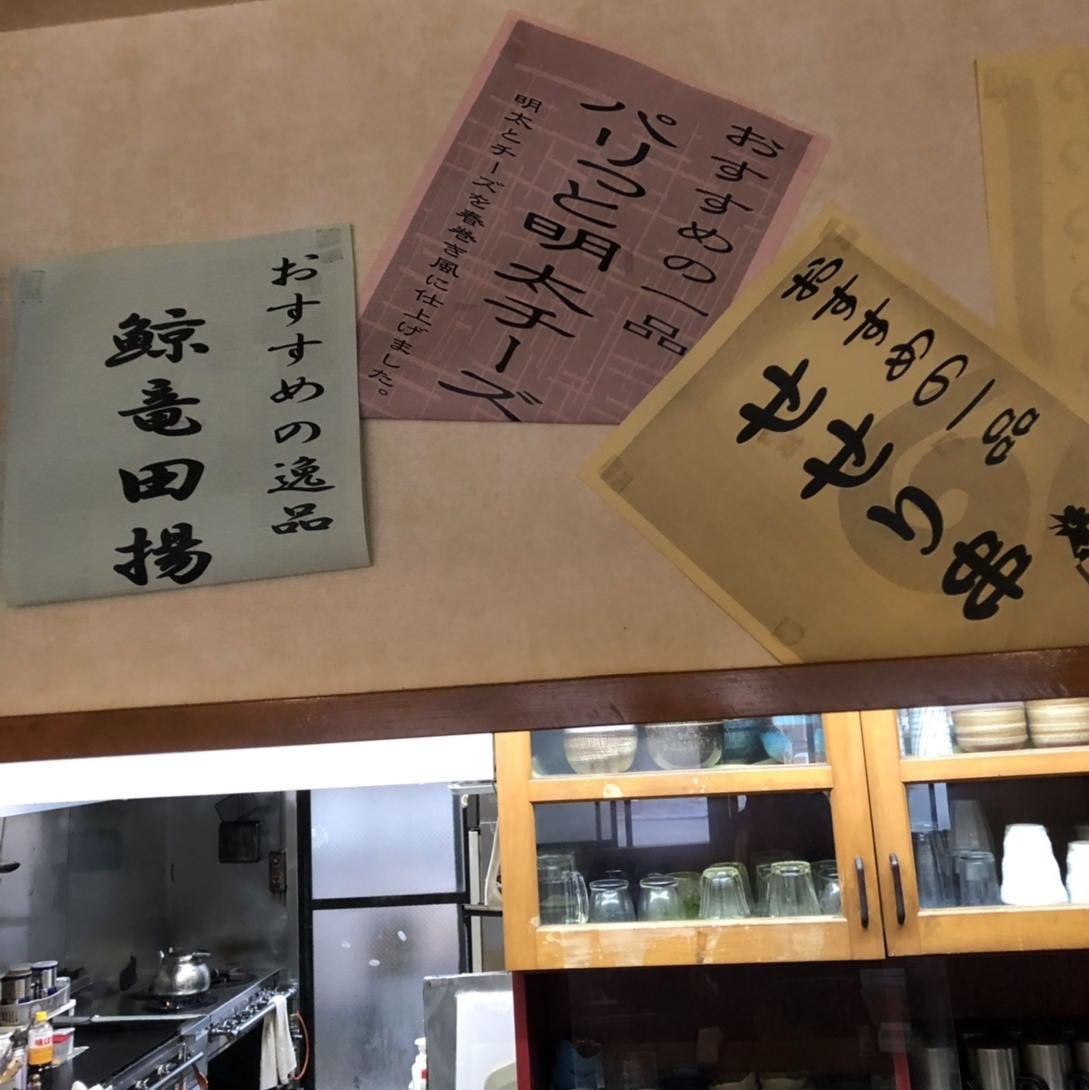 おすすめの逸品
鯨竜田揚
おすすめの一品
パリっと明太チーズ
明太とチーズを春巻き風に仕上げました。
おすすめの一品
せせり串